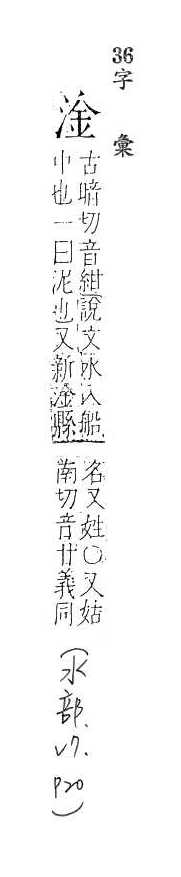 36字彙
淦
古暗切音紺說文水入船
中也一曰泥也又新淦縣
名又姓○又姑
南切音甘義同
(水部、v7.p20)